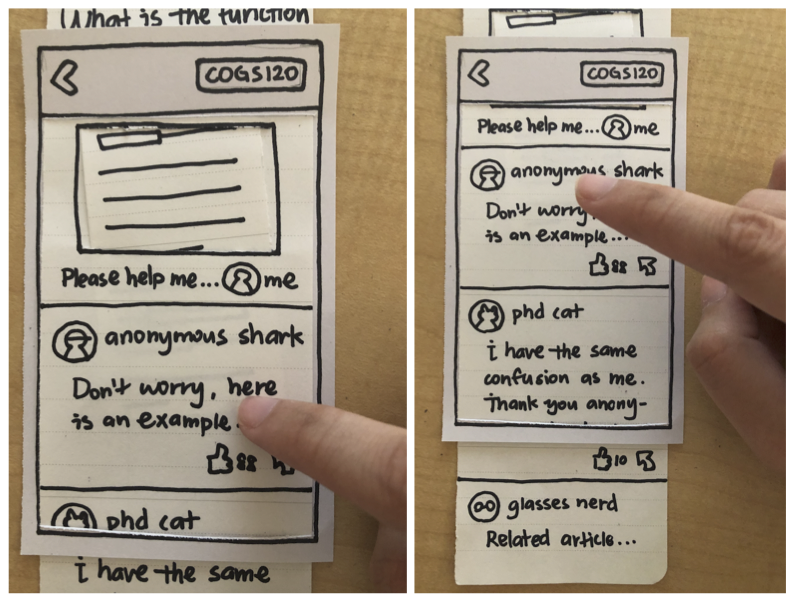 What is the function
COGS120
Please help me... me
anonymous shark
Don't worry, here
is an example.
88
phd cat
i have the same
COGS120
Please help me... me
anonymous shark
Don't worry
is an example...
88
phd cat
i have the same
confusion as me.
Thank you anony-
10
glasses nerd
Related article...